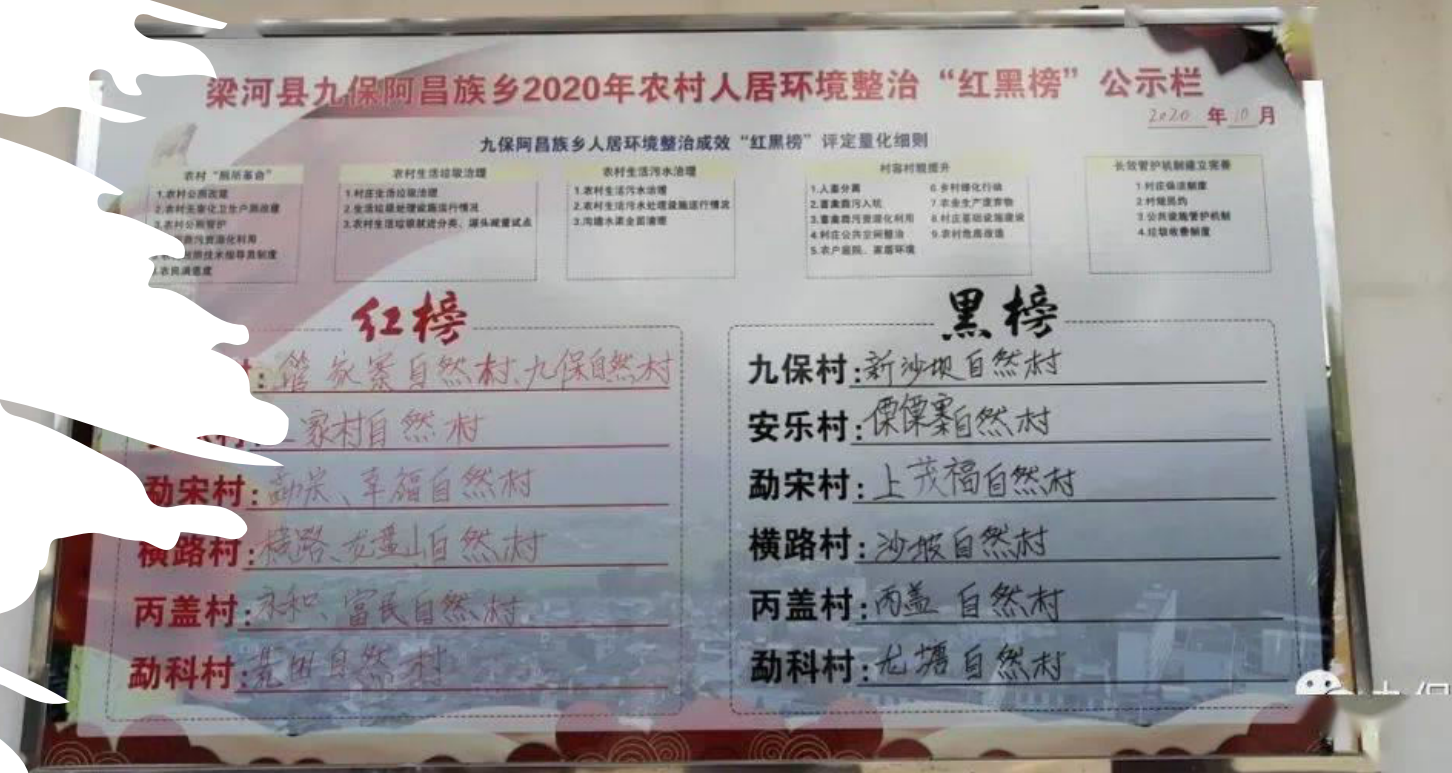 梁河县九保阿昌族乡2020年农村人居环境整治“红黑榜”公示栏
2020年10月
九保阿昌族乡人居环境整治成效“红黑榜”评定量化细则
农村“厕所革命”
1.农村公厕改建
2.农村无害化卫生户厕改建
3.农村公厕管护
粪污资源化利用
技术指导员制度
农民满意度
农村生活垃圾治理
1.村庄生活垃圾治理
2.生活垃圾处理设施运行情况
3.农村生活垃圾就近分类、源头减量试点
农村生活污水治理
1.农村生活污水治理
2.农村生活污水处理设施运行情况
3.沟塘水渠全面清理
村容村貌提升
1.人畜分离
2.畜禽粪污入坑
3.畜禽粪污资源化利用
4.村庄公共空间整治
5.农户庭院、家居环境
6.乡村绿化行动
7.农业生产废弃物
8.村庄基础设施建设
9.农村危房改造
长效管护机制建立完善
1.村庄保洁制度
2.村规民约
3.公共设施管护机制
4.垃圾收费制度
红榜
:管家寨自然村、九保自然村
村:家村自然村
勐宋村:勐宋、幸福自然村
横路村:横路、龙盖山自然村
丙盖村:永和、富民自然村
勐科村:自然村
黑榜
九保村:新沙坝自然村
安乐村:傈僳寨自然村
勐宋村:上茂福自然村
横路村:沙坡自然村
丙盖村:丙盖自然村
勐科村:龙塘自然村